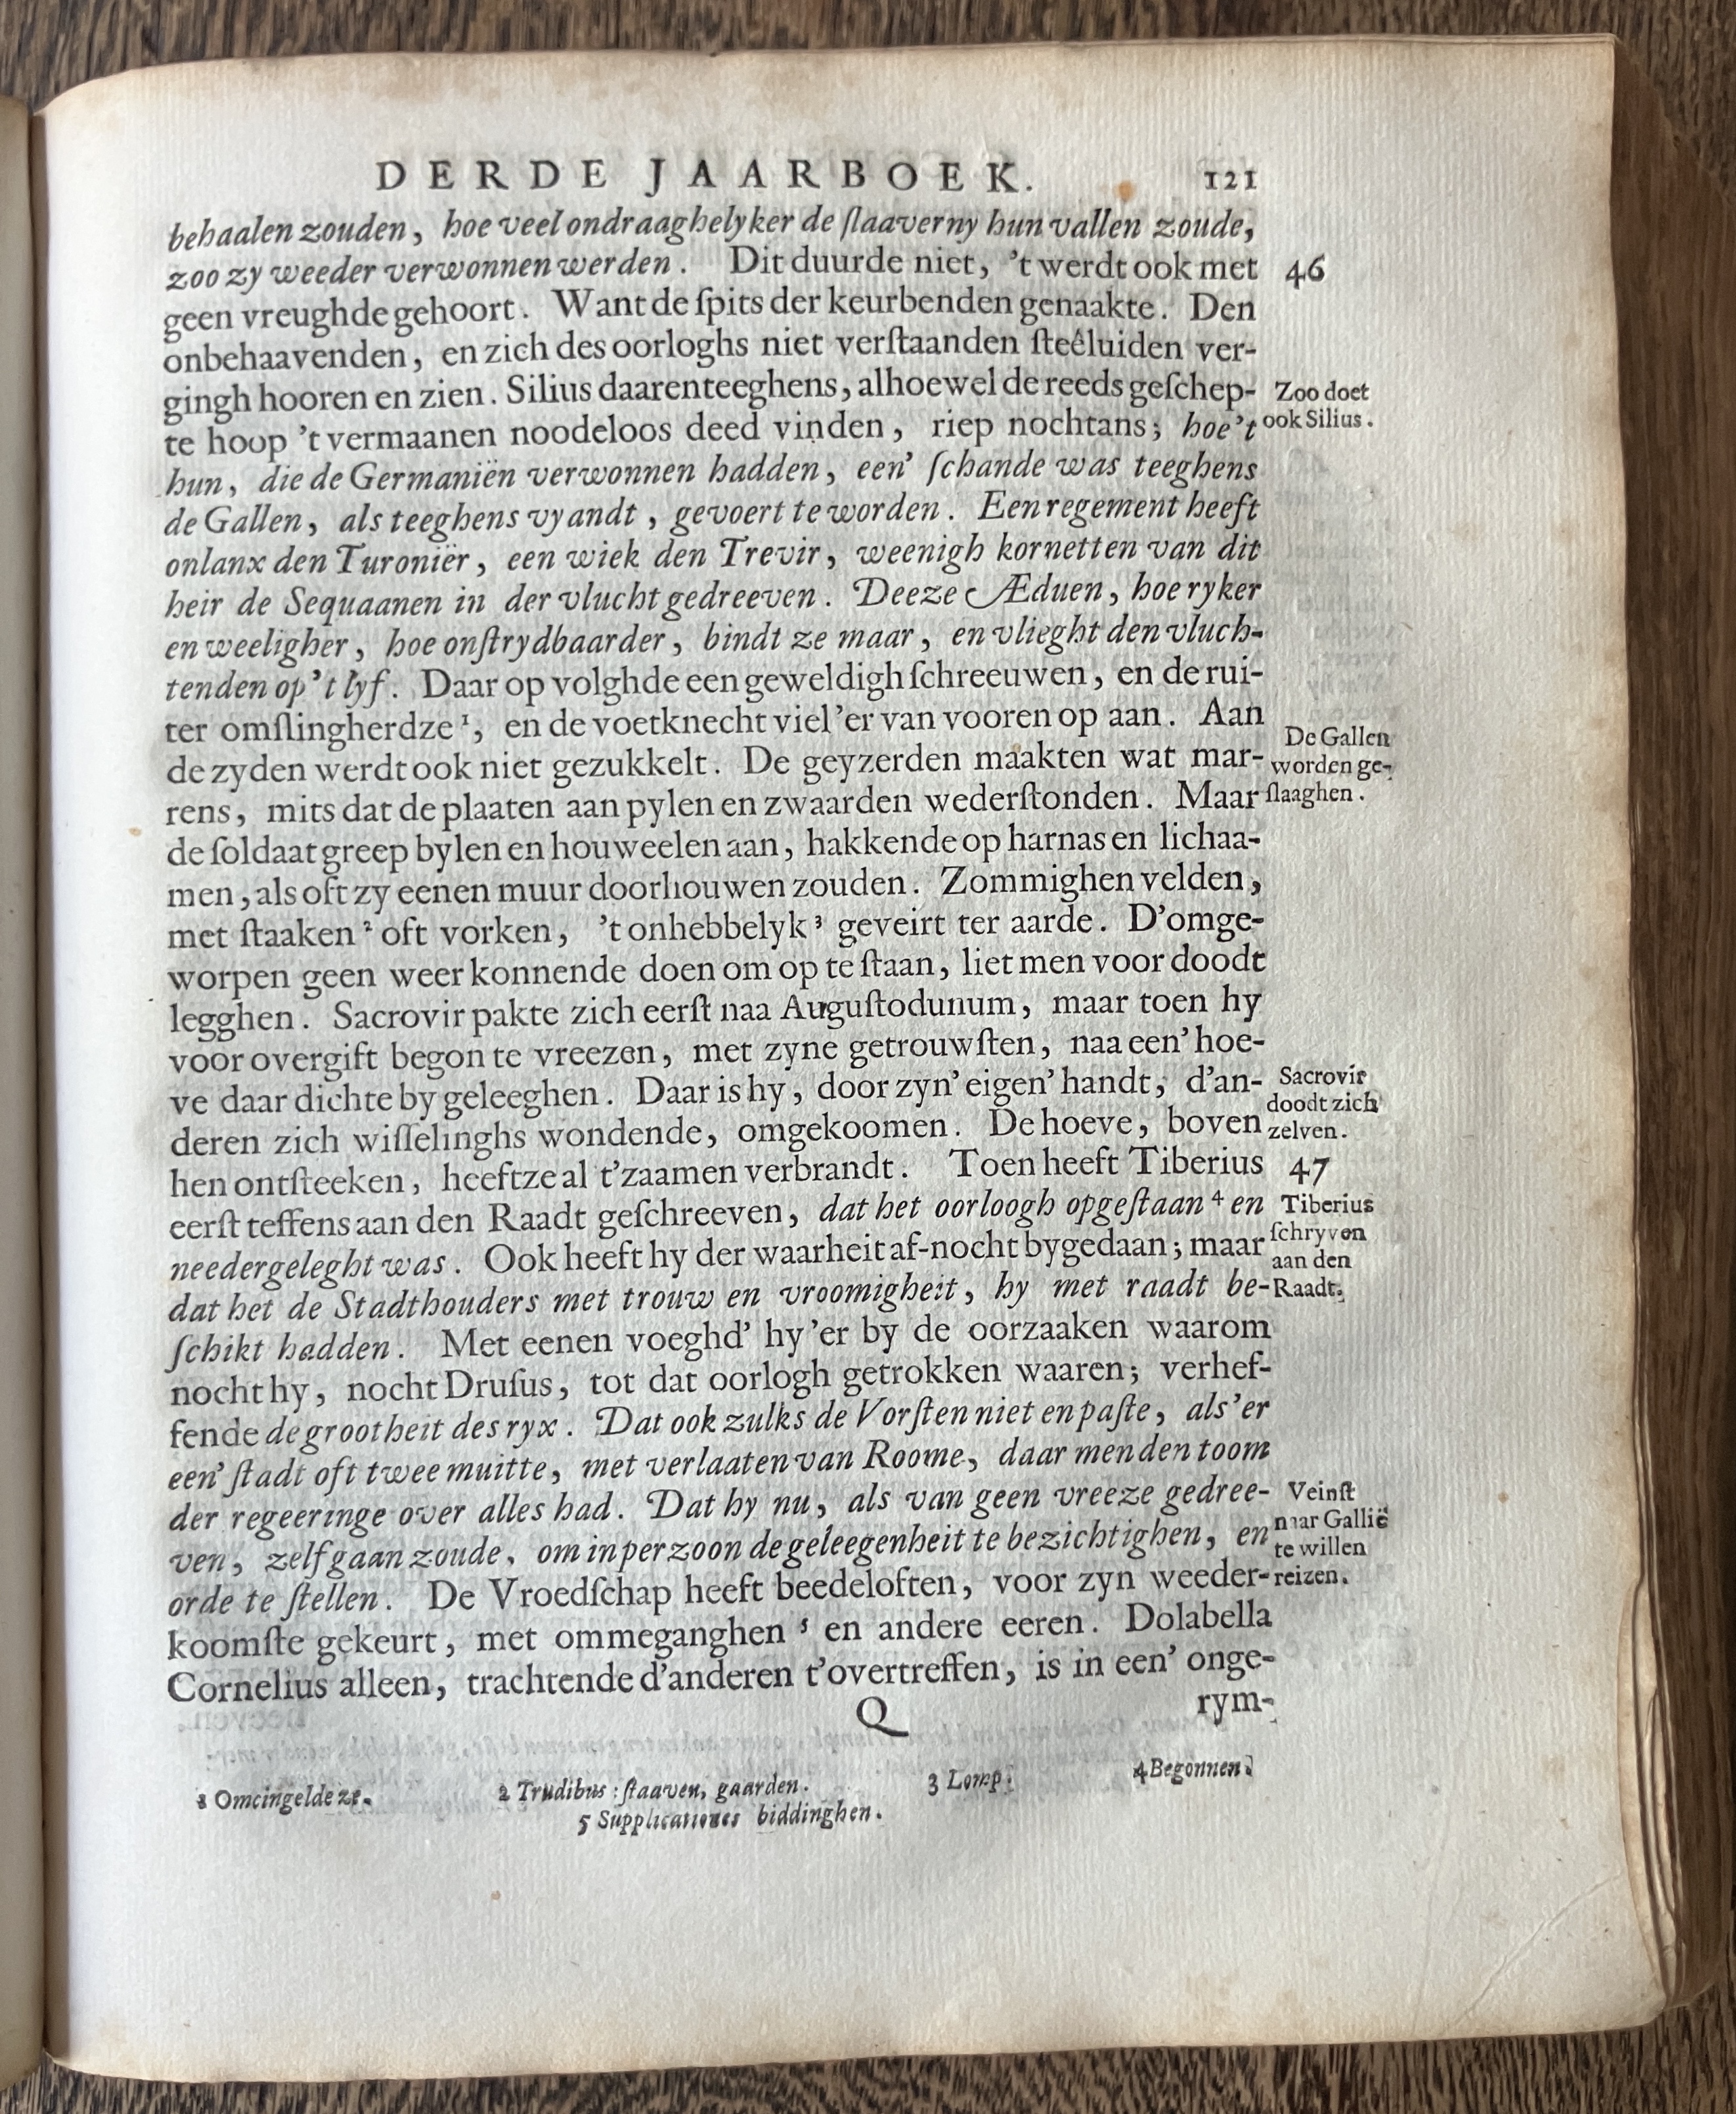 DERDE JAARBOEK. 121
behaalen zouden, hoe veel ondraaghelyker de ſlaaverny hun vallen zoude,
zoo zy weeder verwonnen werden. Dit duurde niet, 't werdt ook met
46
geen vreughde gehoort. Want de ſpits der keurbenden genaakte. Den
onbehaavenden, en zich des oorloghs niet verſtaanden ſteêluiden ver-
gingh hooren en zien. Silius daarenteeghens, alhoewel de reeds geſchep-
te hoop 't vermaanen noodeloos deed vinden, riep nochtans; hoe't
Zoo doet
ook Silius.
hun, die de Germaniën verwonnen hadden, een' ſchande was teeghens
de Gallen, als teeghens vyandt, gevoert te worden. Een regement heeft
onlanx den Turoniër, een wiek den Trevir, weenigh kornetten van dit
heir de Sequaanen in der vlucht gedreeven. Deeze Æduen, hoe ryker
en weeligher, hoe onſtrydbaarder, bindt ze maar, en vlieght den vluch-
tenden op't lyf. Daar op volghde een geweldigh ſchreeuwen, en de rui-
ter omſlingherdze¹, en de voetknecht viel'er van vooren op aan. Aan
de zyden werdt ook niet gezukkelt. De geyzerden maakten wat mar-
rens, mits dat de plaaten aan pylen en zwaarden wederſtonden. Maar
De Gallen
worden ge-
ſlaaghen.
de ſoldaat greep bylen en houweelen aan, hakkende op harnas en lichaa-
men, als oft zy eenen muur doorhouwen zouden. Zommighen velden,
met ſtaaken² oft vorken, 't onhebbelyk³ geveirt ter aarde. D'omge-
worpen geen weer konnende doen om op te ſtaan, liet men voor doodt
legghen. Sacrovir pakte zich eerſt naa Auguſtodunum, maar toen hy
voor overgift begon te vreezen, met zyne getrouwſten, naa een' hoe-
ve daar dichte by geleeghen. Daar is hy, door zyn' eigen' handt, d'an-
deren zich wiſſelinghs wondende, omgekoomen. De hoeve, boven
Sacrovir
doodt zich
zelven.
hen ontſteeken, heeftze al t'zaamen verbrandt. Toen heeft Tiberius
47
eerſt teffens aan den Raadt geſchreeven, dat het oorloogh opgeſtaan⁴ en
needergeleght was. Ook heeft hy der waarheit af-nocht bygedaan; maar
dat het de Stadthouders met trouw en vroomigheit, hy met raadt be-
Tiberius
ſchryven
aan den
Raadt.
ſchikt hadden. Met eenen voeghd' hy'er by de oorzaaken waarom
nocht hy, nocht Druſus, tot dat oorlogh getrokken waaren; verhef-
fende de grootheit des ryx. Dat ook zulks de Vorſten niet en paſte, als'er
een' ſtadt oft twee muitte, met verlaaten van Roome, daar men den toom
der regeeringe over alles had. Dat hy nu, als van geen vreeze gedree-
ven, zelf gaan zoude, om in perzoon de geleegenheit te bezichtighen, en
orde te ſtellen. De Vroedſchap heeft beedeloften, voor zyn weeder-
Veinſt
naar Gallië
te willen
reizen.
koomſte gekeurt, met ommeganghen⁵ en andere eeren. Dolabella
Cornelius alleen, trachtende d'anderen t'overtreffen, is in een' onge-
Q rym-
1 Omcingelde ze. 2 Trudibus: ſtaaven, gaarden. 3 Lomp. 4 Begonnen.
5 Supplicationes biddinghen.